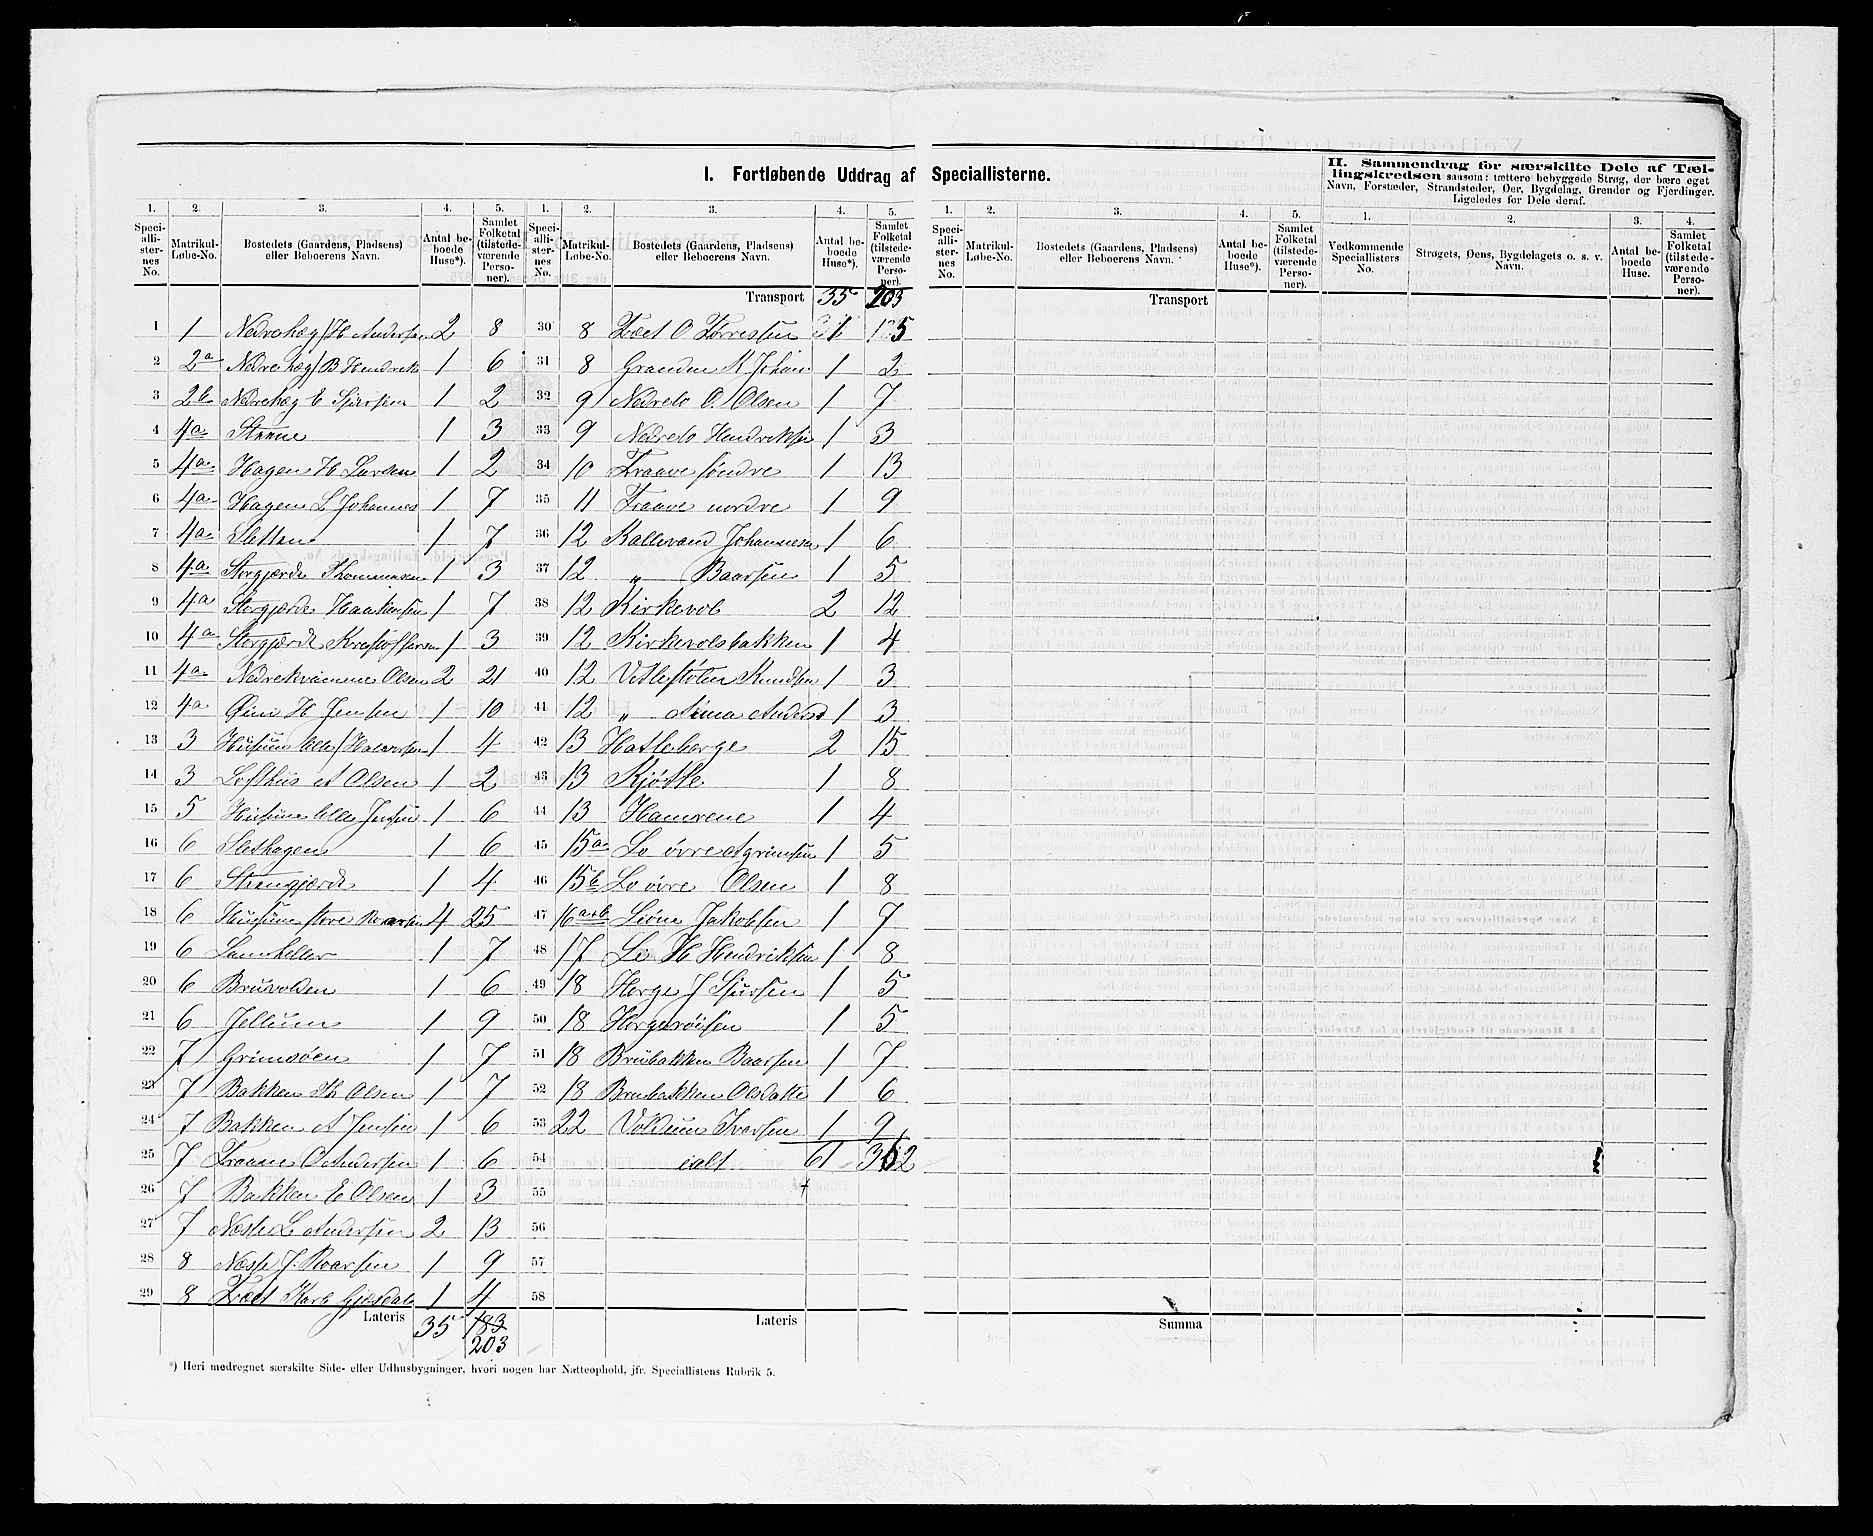 I. Fortløbende Uddrag af Speciallisterne.
II. Sammendrag for særskilte Dele af Tællingskredsen saasom: tættere bebyggede Strøg, der bære eget Navn, Forstæder, Strandsteder, Øer, Bygdelag, Grender og Fjerdinger. Ligeledes for Dele deraf.
1. 2. 3. 4. 5. 1. 2. 3. 4. 5. 1. 2. 3. 4. 5. 1. 2. 3. 4.
Speciallisternes No. Matrikul-Løbe-No. Bostedets (Gaardens, Pladsens) eller Beboerens Navn. Antal beboede Huse*). Samlet Folketal (tilstedeværende Personer).
Speciallisternes No. Matrikul-Løbe-No. Bostedets (Gaardens, Pladsens) eller Beboerens Navn. Antal beboede Huse*). Samlet Folketal (tilstedeværende Personer).
Speciallisternes No. Matrikul-Løbe-No. Bostedets (Gaardens, Pladsens) eller Beboerens Navn. Antal beboede Huse*). Samlet Folketal (tilstedeværende Personer).
Vedkommende Speciallisters No. Strøgets, Øens, Bygdelagets o. s. v. Navn. Antal beboede Huse. Samlet Folketal (tilstedeværende Personer).
1 1 Nedrehæg /H Andersen 2 8
2 2a Nedrehæg /B Hendrik 1 6
3 2b Nedrehæg E Sjursen 1 2
4 4a 1 3
5 4a Hagen H Larsen 1 2
6 4a Hagen L Johannes 1 7
7 4a Sletten 1 7
8 4a Storgjærde Thommesen 1 3
9 4a Storgjærde Haakensen 1 7
10 4a Storgjærde Kristoffersen 1 3
11 4a Nedrekvamme Olsen 2 21
12 4a Øini H Jensen 1 10
13 3 Husum lille /Halvorsen 1 4
14 3 Lofthus A Olsen 1 2
15 5 Husum lille Jensen 1 6
16 6 Slethagen 1 6
17 6 Strengjerde 1 4
18 6 Husum store Roarsen 4 25
19 6 Lamheller 1 7
20 6 Bruvolden 1 6
21 6 Jellum 1 9
22 7 Grimsøen 1 7
23 7 Bakken Th Olsen 1 7
24 7 Bakken A Jensen 1 6
25 7 O Andersen 1 6
26 7 Bakken E Olsen 1 3
27 7 Næsse L Andersen 2 13
28 8 Næsse J. Roarsen 1 9
29 8 Karl Gjesdal 1 4
Lateris 35 183
203
Transport 35 203
30 8 O Torressen 1 5
31 8 Granden K Johan 1 2
32 9 Nedrelo O. Olsen 1 7
33 9 Nedrelo Hendriksen 1 3
34 10 Traave søndre 1 13
35 11 Traave nordre 1 9
36 12 Kallevand Johannesen 1 6
37 12 " Baarsen 1 5
38 12 Kirkevol 2 12
39 12 Kirkevolsbakken 1 4
40 12 Vetlestølen Knudsen 1 3
41 12 " Anna Andersd 1 3
42 13 Hatleberge 2 15
43 13 Kjøtle 1 8
44 13 Hamrene 1 4
45 15a Lo øvre Agrimsen 1 5
46 15b Lo øvre Olsen 1 8
47 16a+b Liøne Jakobsen 1 7
48 17 Li H Hendriksen 1 8
49 18 Horge J Sjursen 1 5
50 18 Horgerøisen 1 5
51 18 Brubakken Baarsen 1 7
52 18 Brubakken Olsdatte 1 6
53 22 Voldum Ivarsen 1 9
54 ialt 61 362
55
56
57
58
Lateris
Transport
Summa
*) Heri medregnet særskilte Side- eller Udhusbygninger, hvori nogen har Natteophold, jfr. Speciallistens Rubrik 5.